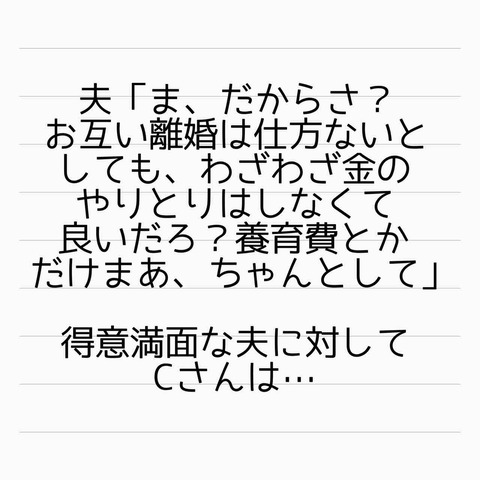 夫「ま、だからさ？
お互い離婚は仕方ないと
しても、わざわざ金の
やりとりはしなくて
良いだろ？養育費とか
だけまあ、ちゃんとして」
得意満面な夫に対して
Cさんは…